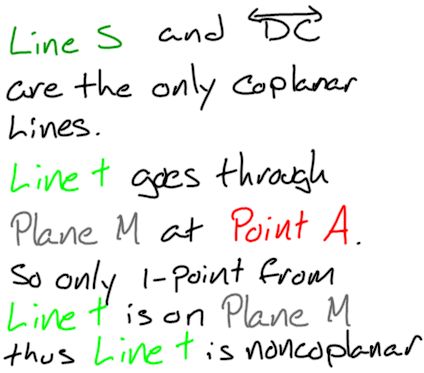 Line S and DC
are the only coplanar
Lines.
Line t goes through
Plane M at Point A.
So only 1-point from
Line t is on Plane M
thus Line t is noncoplanar